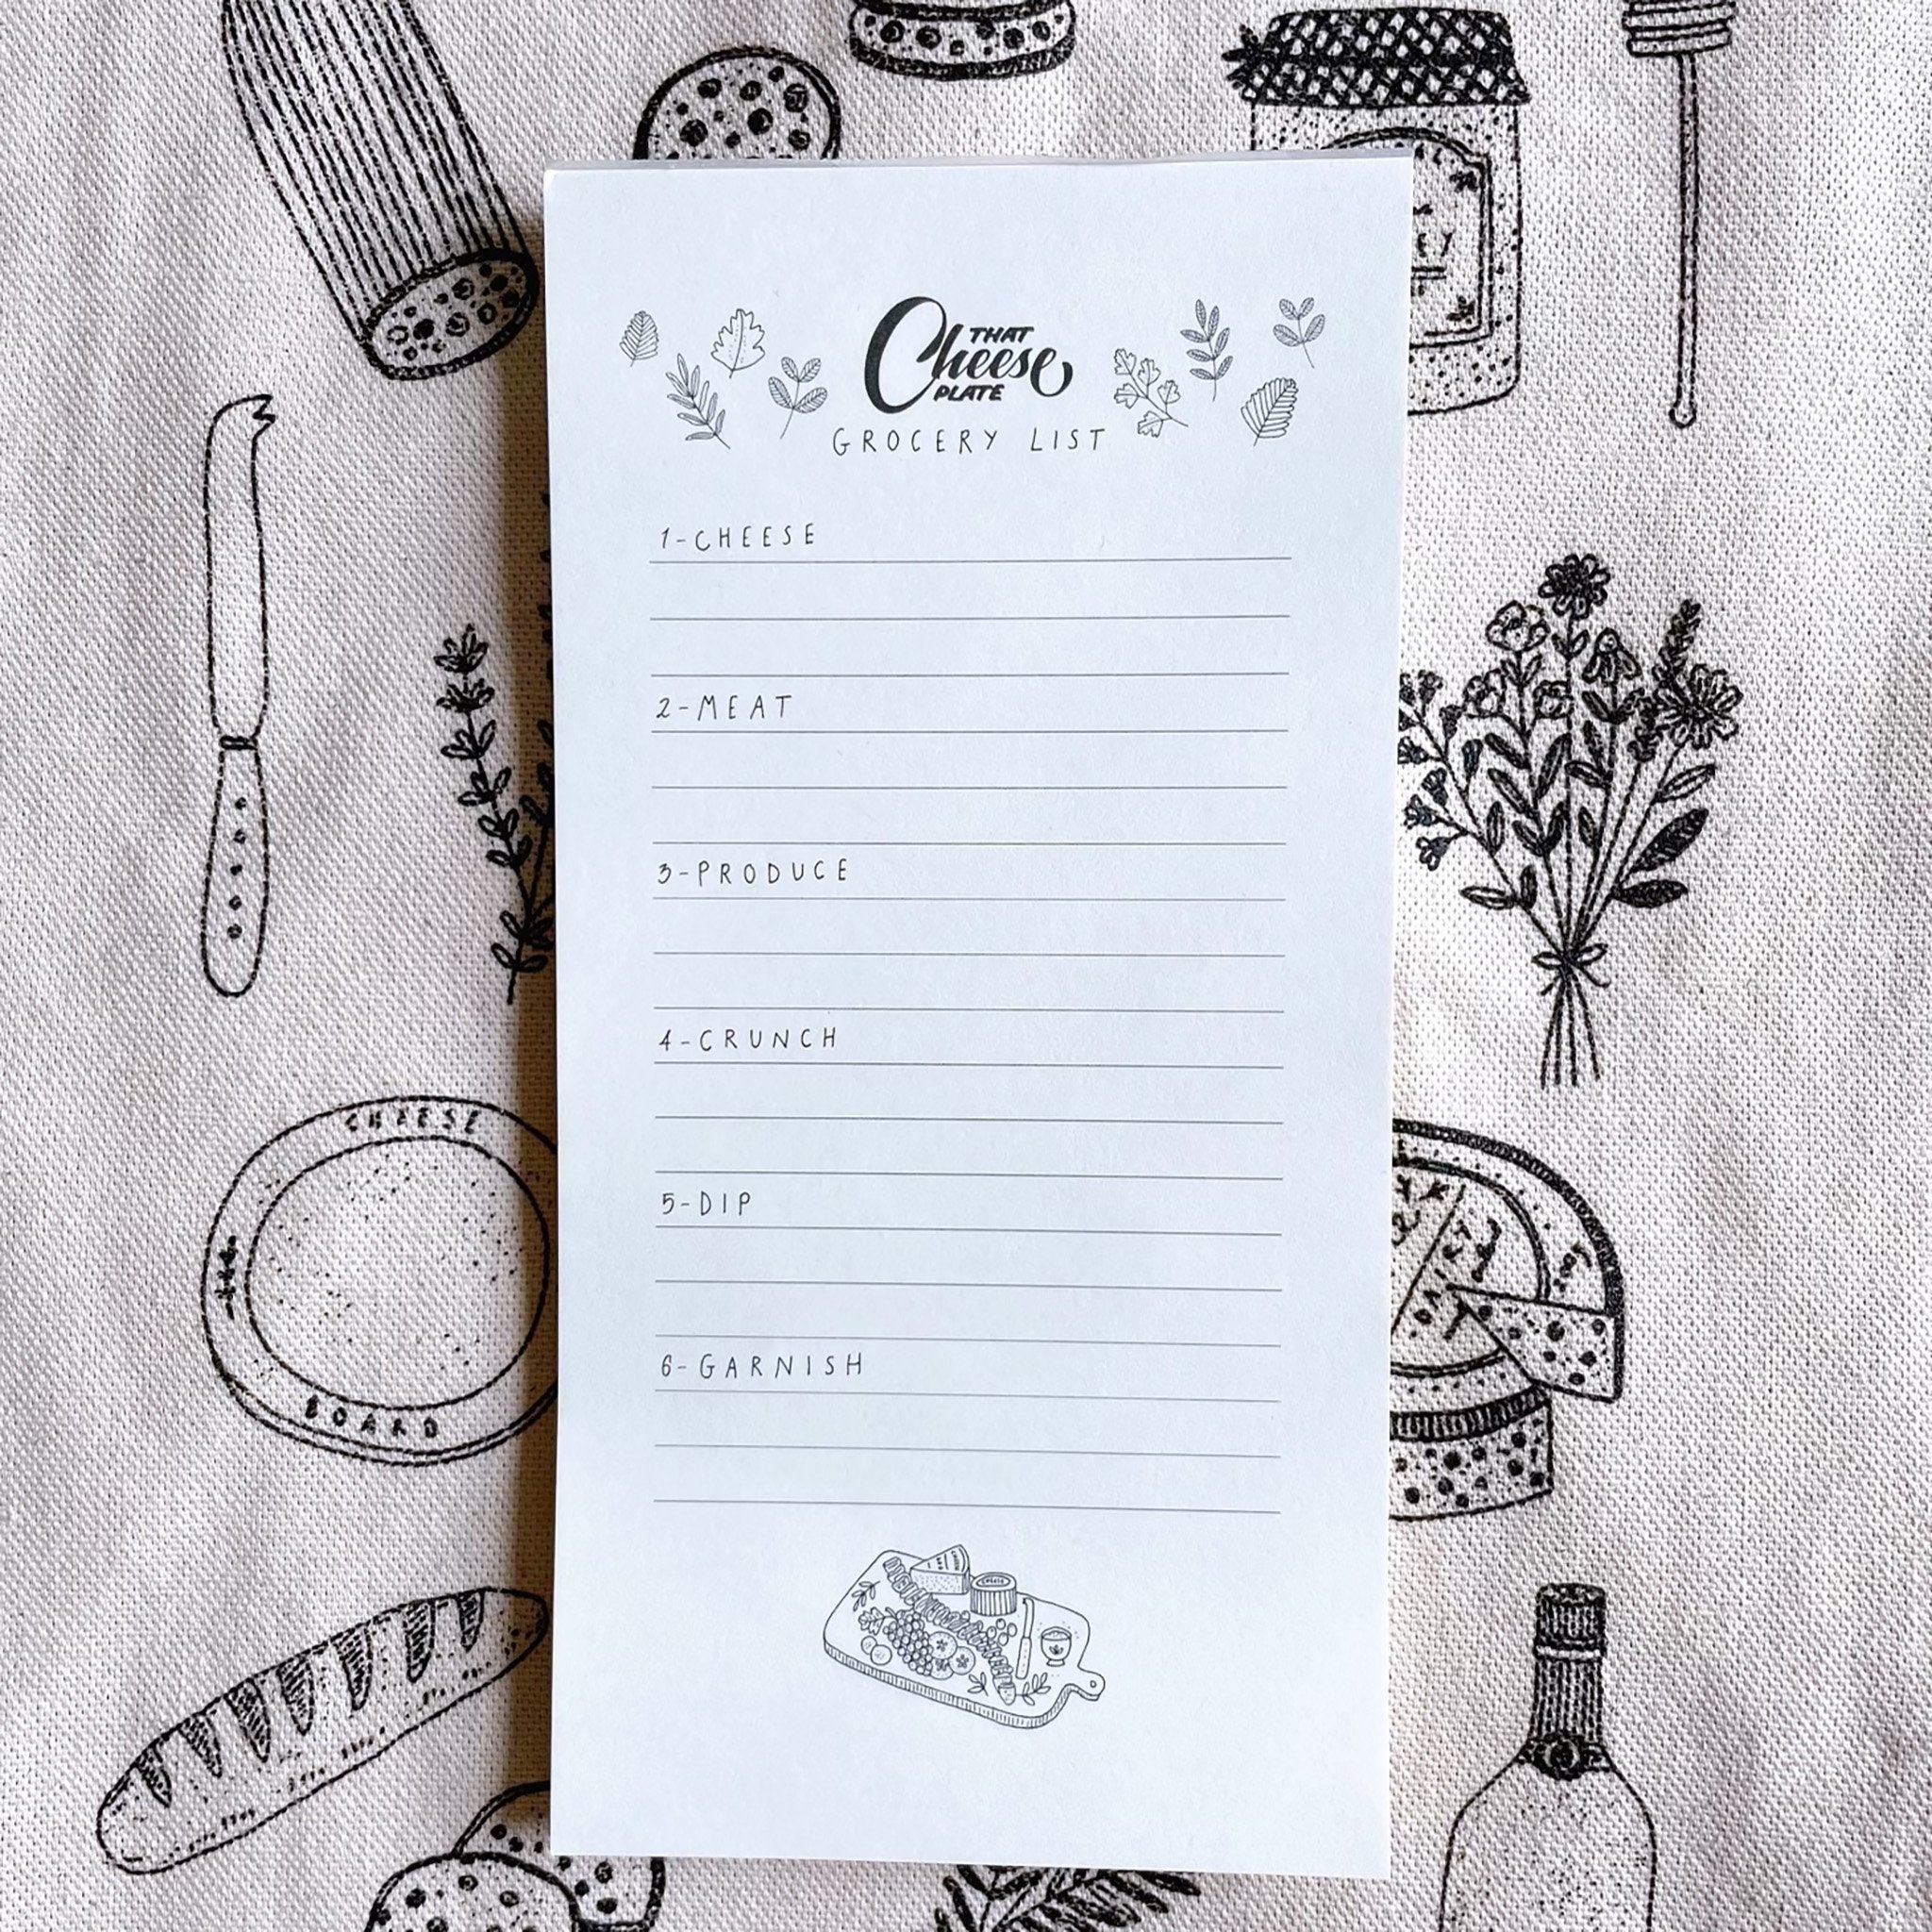 THAT
Cheese
PLATE
GROCERY LIST
1-CHEESE
2-MEAT
3-PRODUCE
4-CRUNCH
5-DIP
6-GARNISH
CHEESE
BOARD